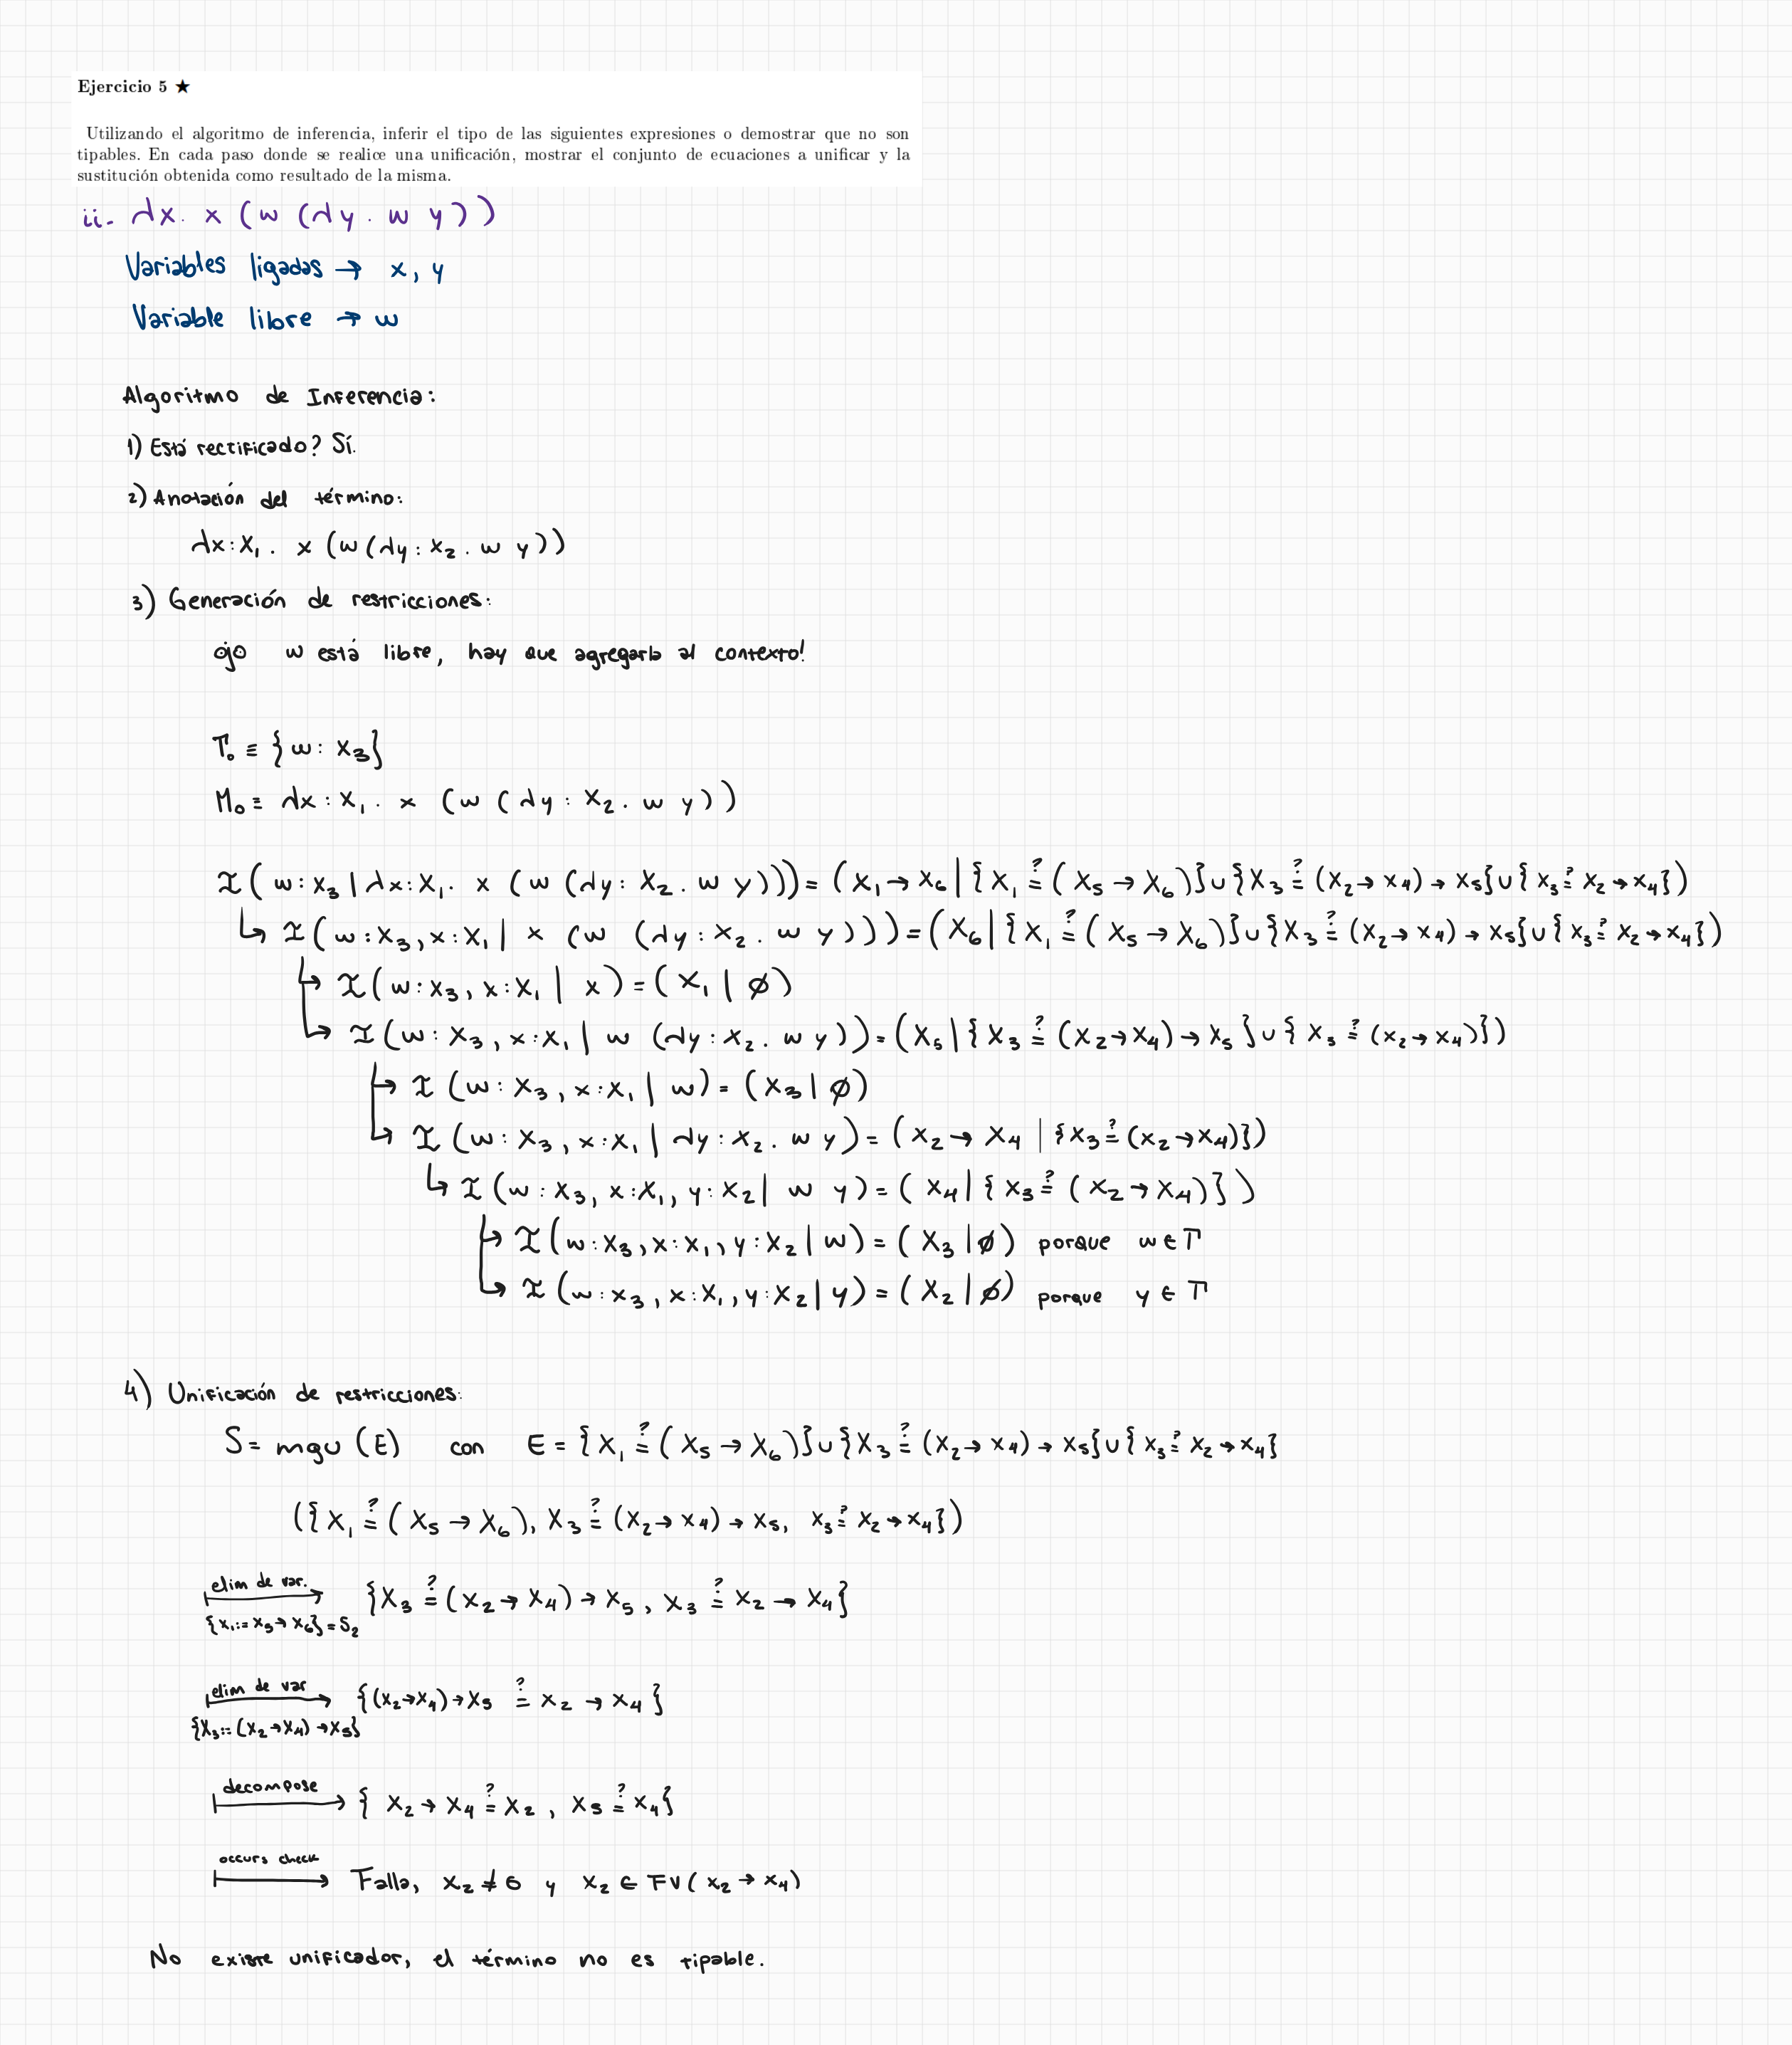 Ejercicio 5 ★
Utilizando el algoritmo de inferencia, inferir el tipo de las siguientes expresiones o demostrar que no son
tipables. En cada paso donde se realice una unificación, mostrar el conjunto de ecuaciones a unificar y la
sustitución obtenida como resultado de la misma.
ii- λx. x (w (λy. w y))
Variables ligadas → x, y
Variable libre → w
Algoritmo de Inferencia:
1) Está rectificado? Sí.
2) Anotación del término:
λx:X₁. x (w (λy:X₂. w y))
3) Generación de restricciones:
ojo w está libre, hay que agregarla al contexto!
Γ₀ ≡ {w: X₃}
M₀ ≡ λx:X₁. x (w (λy:X₂. w y))
I(w:X₃ | λx:X₁. x (w (λy:X₂. w y))) = (X₁ → X₆ | {X₁ ≟ (X₅ → X₆)} ∪ {X₃ ≟ (X₂ → X₄) → X₅} ∪ {X₃ ≟ X₂ → X₄})
↳ I(w:X₃, x:X₁ | x (w (λy:X₂. w y))) = (X₆ | {X₁ ≟ (X₅ → X₆)} ∪ {X₃ ≟ (X₂ → X₄) → X₅} ∪ {X₃ ≟ X₂ → X₄})
↳ I(w:X₃, x:X₁ | x) = (X₁ | ∅)
↳ I(w:X₃, x:X₁ | w (λy:X₂. w y)) = (X₅ | {X₃ ≟ (X₂ → X₄) → X₅} ∪ {X₃ ≟ (X₂ → X₄)})
↳ I(w:X₃, x:X₁ | w) = (X₃ | ∅)
↳ I(w:X₃, x:X₁ | λy:X₂. w y) = (X₂ → X₄ | {X₃ ≟ (X₂ → X₄)})
↳ I(w:X₃, x:X₁, y:X₂ | w y) = (X₄ | {X₃ ≟ (X₂ → X₄)})
↳ I(w:X₃, x:X₁, y:X₂ | w) = (X₃ | ∅) porque w ∈ Γ
↳ I(w:X₃, x:X₁, y:X₂ | y) = (X₂ | ∅) porque y ∈ Γ
4) Unificación de restricciones:
S = mgu (E) con E = {X₁ ≟ (X₅ → X₆)} ∪ {X₃ ≟ (X₂ → X₄) → X₅} ∪ {X₃ ≟ X₂ → X₄}
({X₁ ≟ (X₅ → X₆), X₃ ≟ (X₂ → X₄) → X₅, X₃ ≟ X₂ → X₄})
elim de var.
{X₃ ≟ (X₂ → X₄) → X₅, X₃ ≟ X₂ → X₄}
{X₁:= X₅ → X₆} = S₂
elim de var
{(X₂ → X₄) → X₅ ≟ X₂ → X₄}
{X₃:= (X₂ → X₄) → X₅}
decompose
{X₂ → X₄ ≟ X₂, X₅ ≟ X₄}
occurs check
Falla, X₂ ≠ σ y X₂ ∈ FV(X₂ → X₄)
No existe unificador, el término no es tipable.